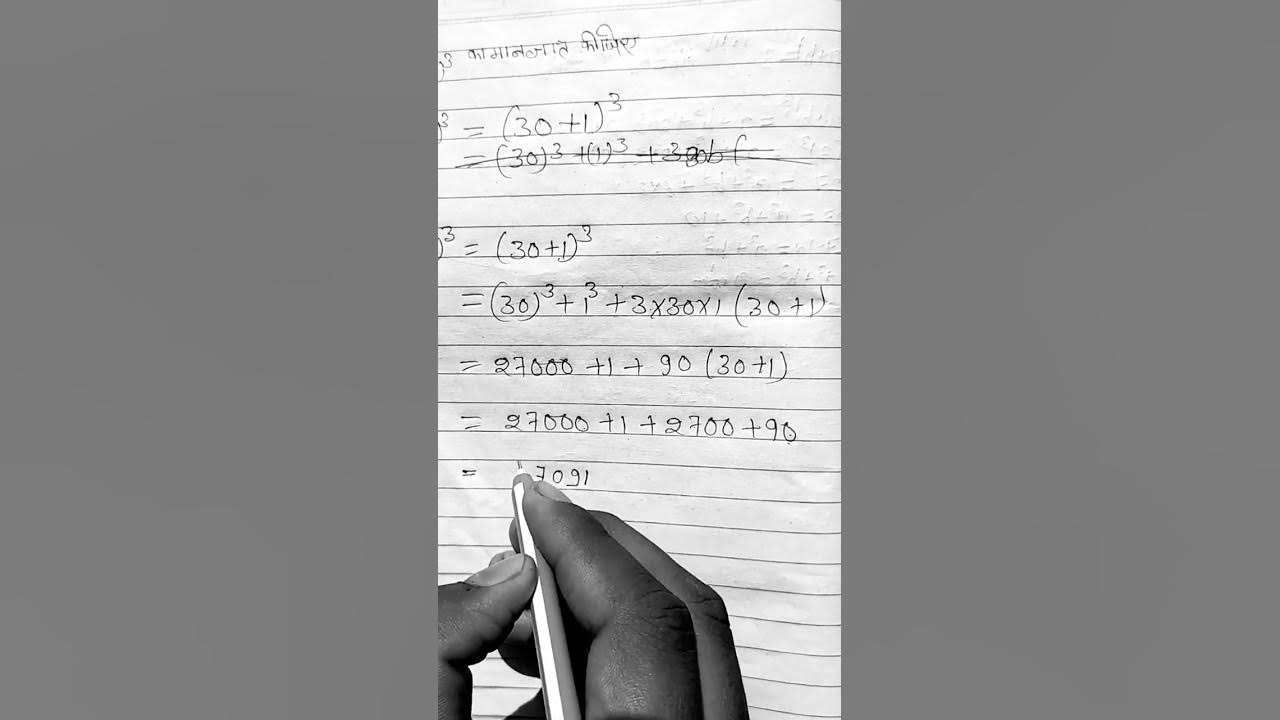 )³ का मान ज्ञात कीजिए
)³ = (30+1)³
= (30)³ + (1)³ + 3
)³ = (30+1)³
= (30)³ + 1³ + 3×30×1 (30+1)
= 27000 +1 + 90 (30+1)
= 27000 +1 + 2700 + 90
= 7091